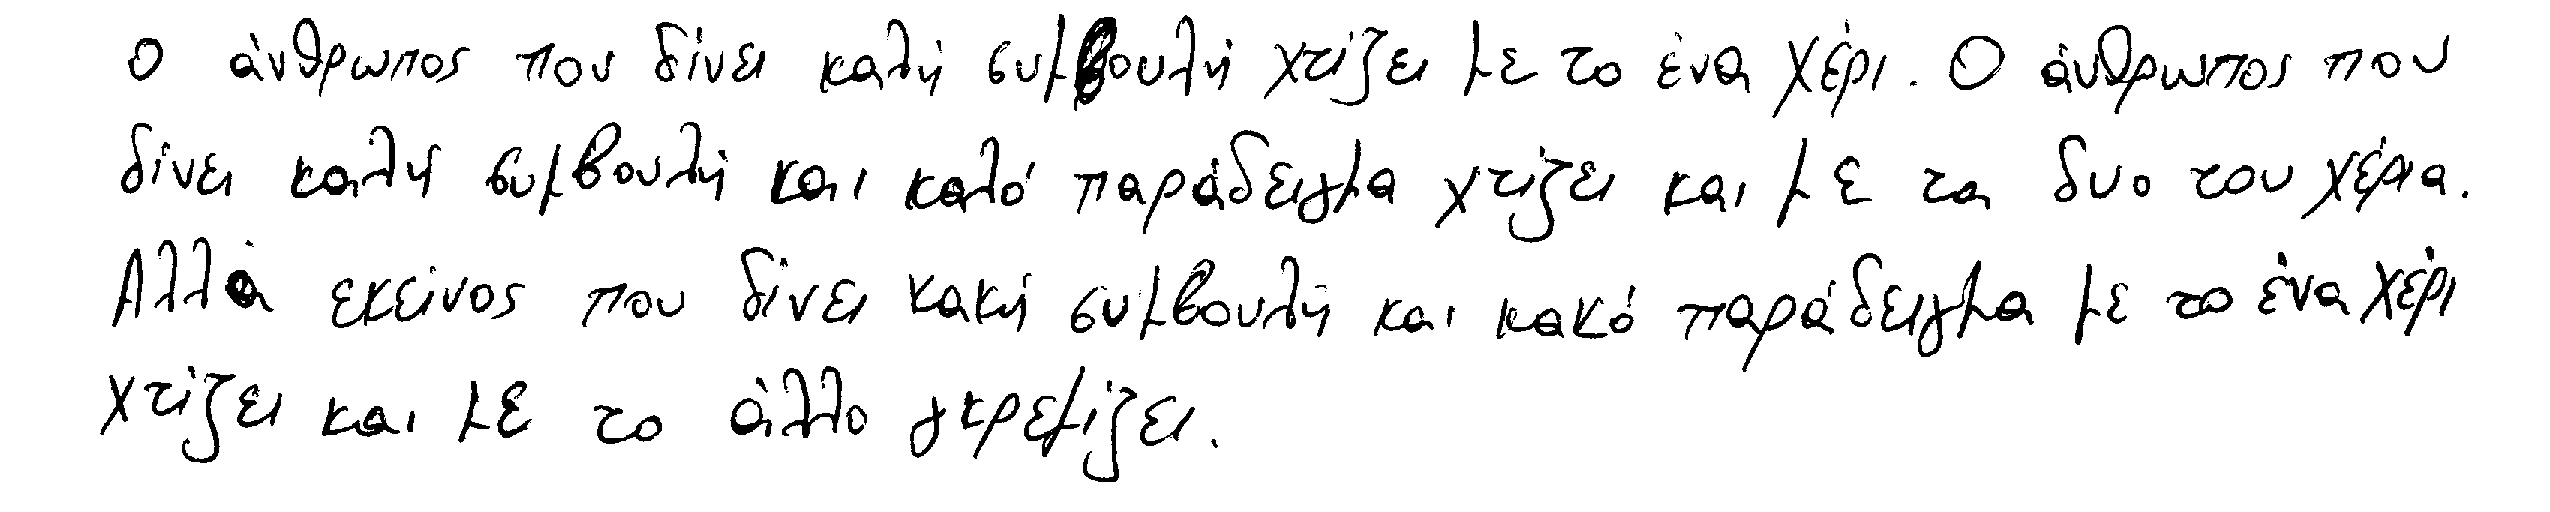 Ο άνθρωπος που δίνει καλή συμβουλή χτίζει με το ένα χέρι. Ο άνθρωπος που
δίνει καλή συμβουλή και καλό παράδειγμα χτίζει και με τα δυο του χέρια.
Αλλά εκείνος που δίνει κακή συμβουλή και κακό παράδειγμα με το ένα χέρι
χτίζει και με το άλλο γκρεμίζει.